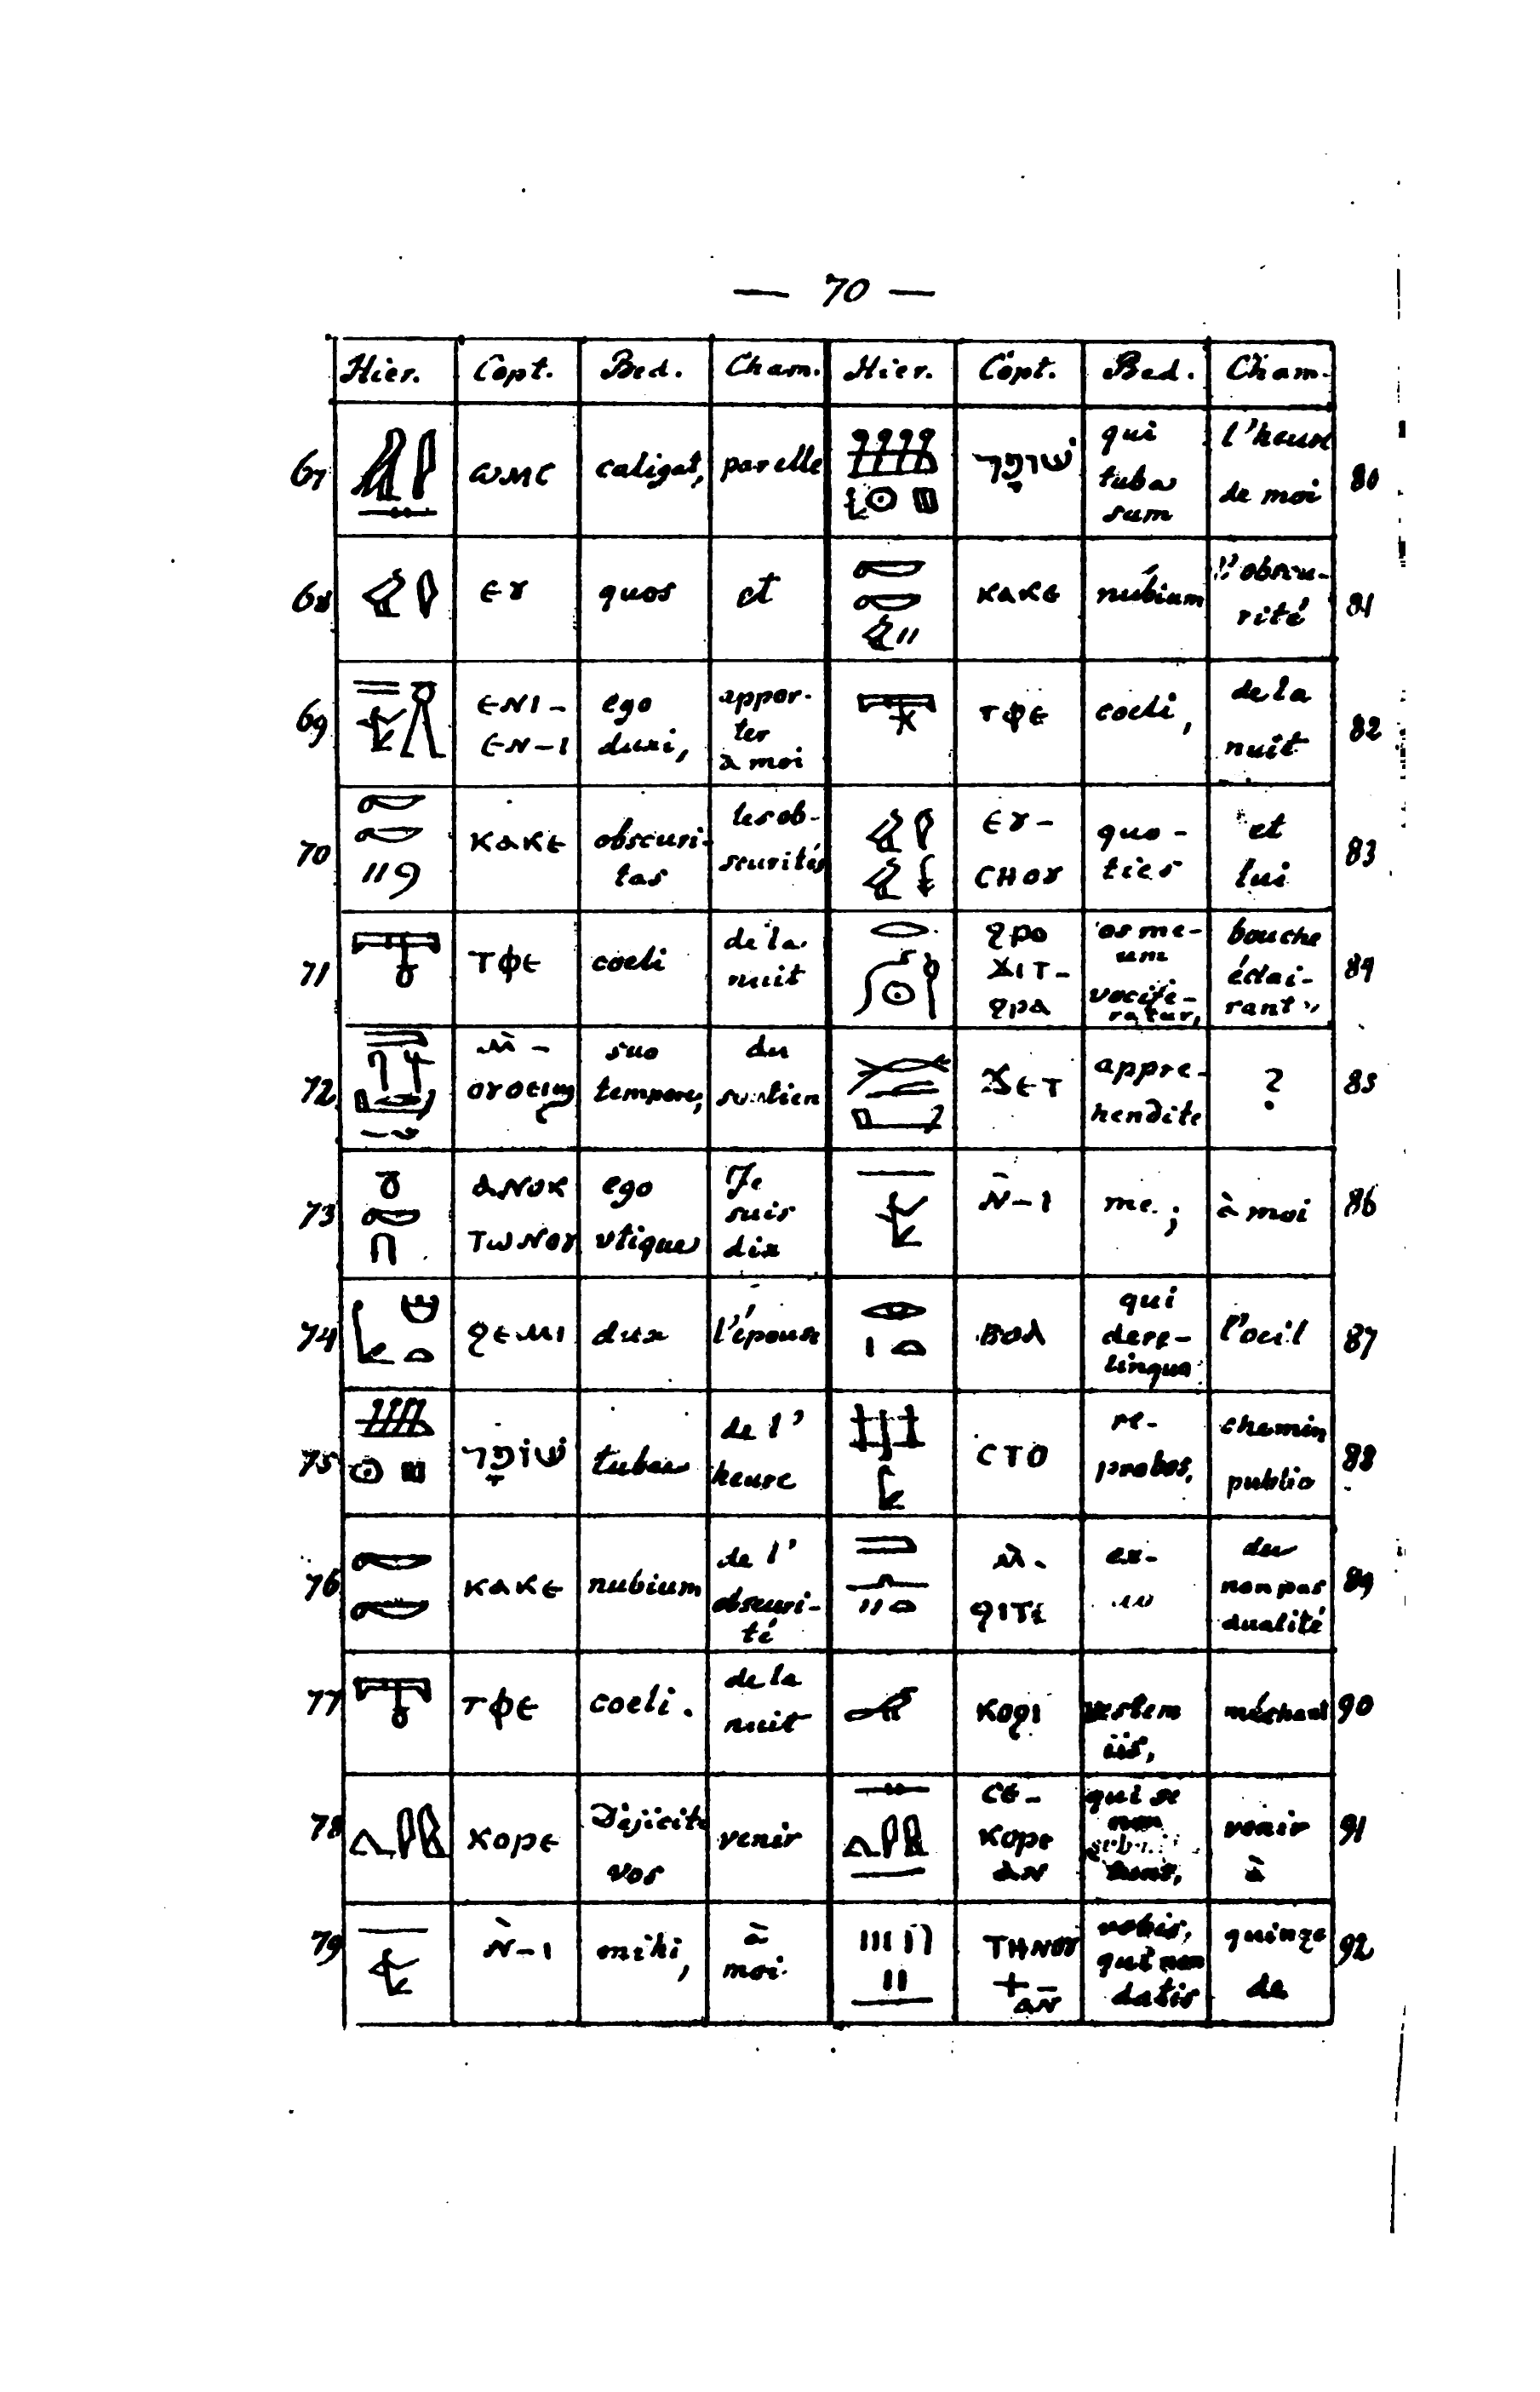 — 70 —
Hier. Copt. Bed. Cham. Hier. Copt. Bed. Cham.
67 ⲱⲙⲥ caligat, par elle שׁוֹפָר qui tuba sum l'heure de moi 80
68 ⲉⲩ quos et ⲕⲁⲕⲉ nubium l'obscurité 81
69 ⲉⲛⲓ- ⲉⲛ-ⲓ ego duxi, apporter à moi ⲧⲫⲉ coeli, de la nuit 82
70 ⲕⲁⲕⲉ obscuri- tas les ob- scurités ⲉⲩ- ⲥⲏⲟⲩ quo- ties et lui 83
71 ⲧⲫⲉ coeli de la nuit ϩⲣⲟ ϫⲓⲧ- ϩⲣⲁ os me- um vocife- ratur, bouche éclai- rant 84
72 ⲙ̀- ⲟⲩⲟⲉⲓϣ suo tempore, du soutien ϫⲉⲧ appre- hendite ? 85
73 ⲁⲛⲟⲕ ⲧⲱⲛⲟⲩ ego utique Je suis dix ⲛ̄-ⲓ me; à moi 86
74 ϩⲉⲙⲓ dux l'épouse ⲃⲟⲗ qui dere- linquo l'oeil 87
75 שׁוֹפָר tubae de l' heure ⲥⲧⲟ re- probos, chemin public 88
76 ⲕⲁⲕⲉ nubium de l' obscuri- té ⲙ̀- ϥⲓⲧⲉ ex- du non pas dualité 89
77 ⲧⲫⲉ coeli. de la nuit ⲕⲟϥⲓ vestem iis, méchant 90
78 ⲕⲟⲣⲉ Dejicite vos venir ⲥⲉ- ⲕⲟⲣⲉ ⲁⲛ qui se non venir à 91
79 ⲛ̀-ⲓ mihi, à moi ⲧⲏⲛⲟⲩ ϯ ⲁⲛ̄ vobis, qui non datis quinze de 92